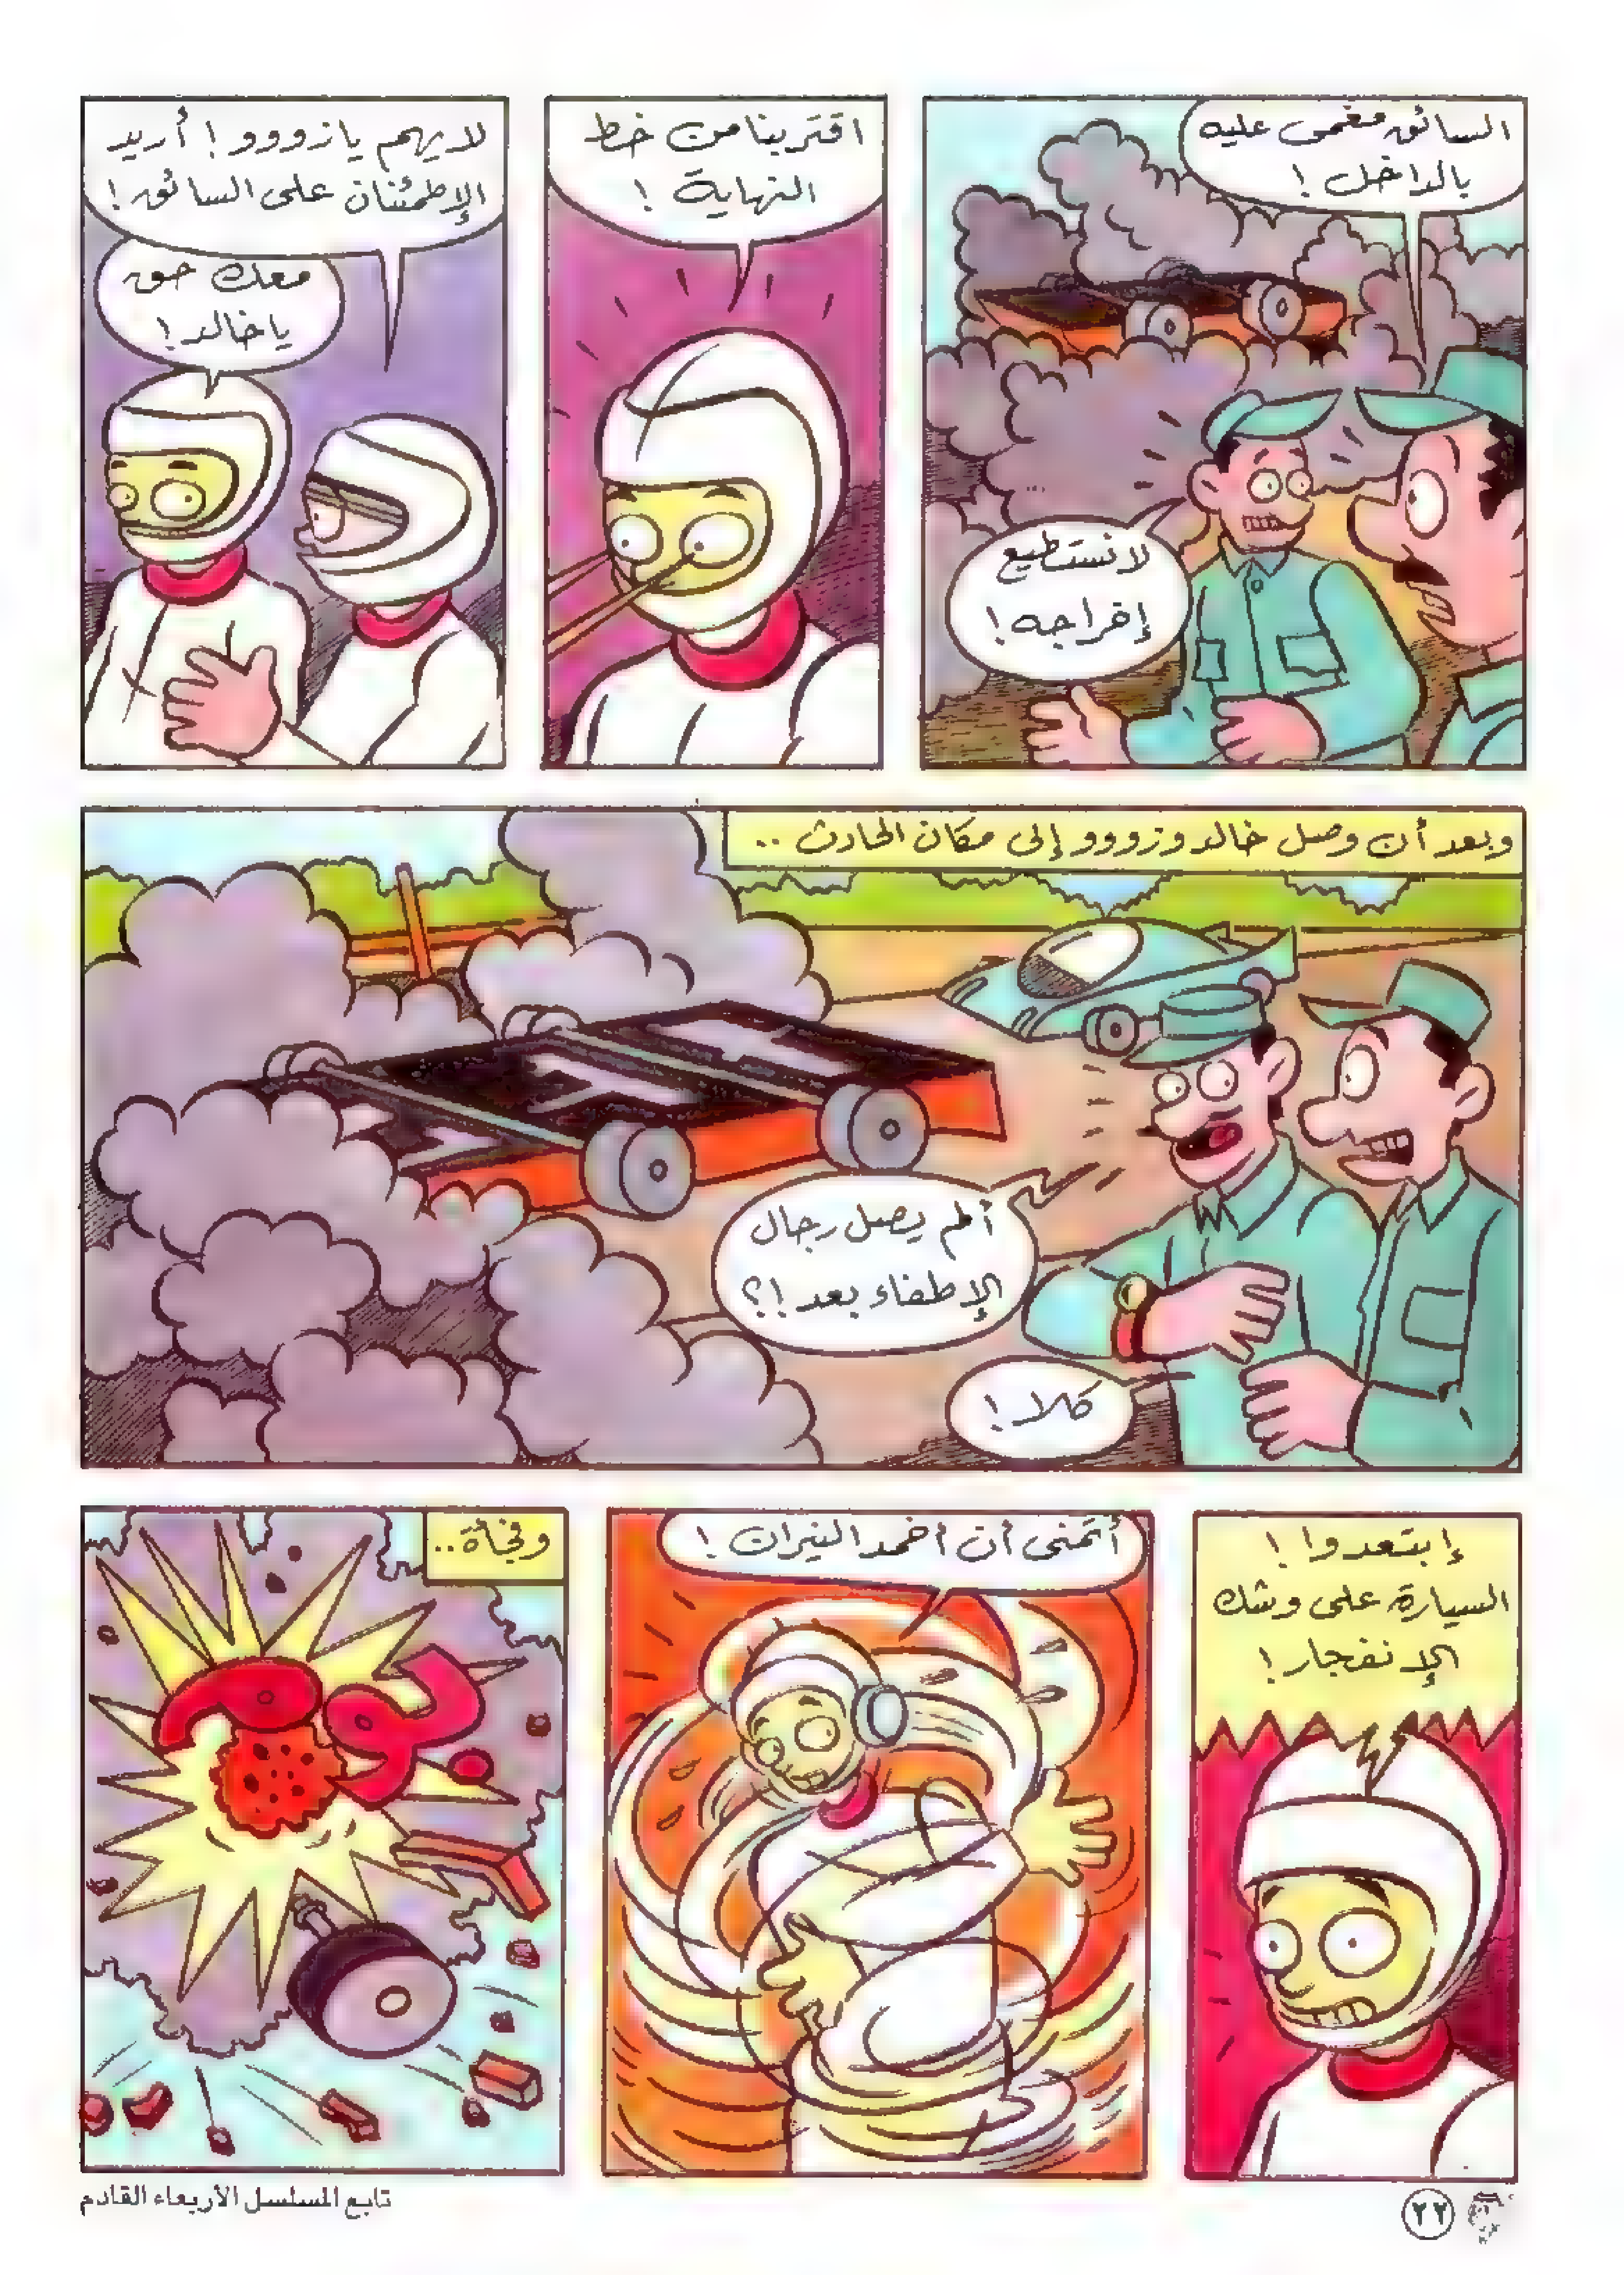 السائق مغمى عليه
بالداخل !
لا نستطيع
إخراجه !
اقتربنا من خط
النهاية !
لا يهم يا زووو ! أريد
الإطمئنان على السائق !
معك حق
يا خالد !
وبعد أن وصل خالد وزووو إلى مكان الحادث ..
ألم يصل رجال
الإطفاء بعد !؟
كلا !
إبتعدوا !
السيارة على وشك
الإنفجار !
أتمنى أن أخمد النيران !
وفجأة ..
بوم
٢٢
تابع المسلسل الأربعاء القادم